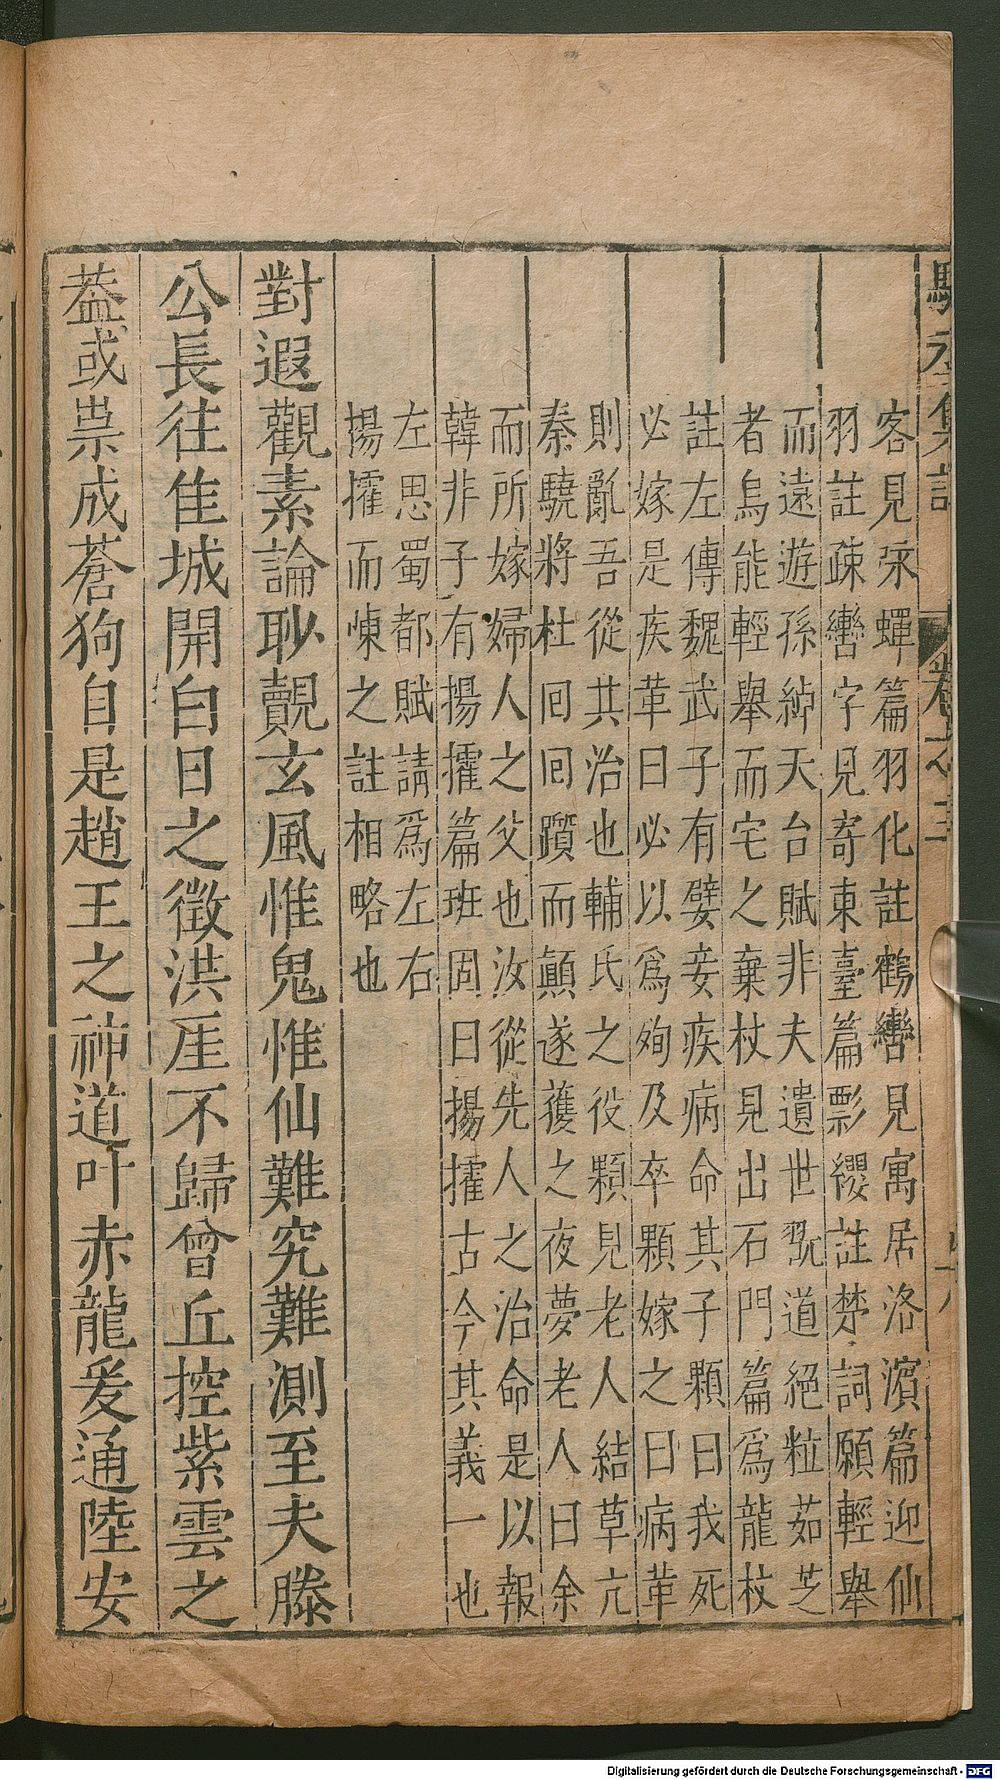 客見永蟬篇羽化註鶴轡見寓居洛濱篇迎仙
羽註疎轡字見寄東臺篇影纓註楚詞願輕舉
而遠遊孫綽天台賦非夫遺世翫道絕粒茹芝
者烏能輕舉而宅之棄杖見出石門篇爲龍杖
註左傳魏武子有嬖妾疾病命其子顆曰我死
必嫁是疾革曰必以爲殉及卒顆嫁之曰病革
則亂吾從其治也輔氏之役顆見老人結草亢
秦驍將杜回回躓而顛遂獲之夜夢老人曰余
而所嫁婦人之父也汝從先人之治命是以報
韓非子有揚搉篇班固曰揚搉古今其義一也
左思蜀都賦請爲左右
揚搉而㨂之註相略也
對遐觀素論聊覿玄風惟鬼惟仙難究難測至夫滕
公長往隹城開白日之徵洪厓不歸曾丘控紫雲之
葢或祟成蒼狗自是趙王之神道叶赤龍爰通陸安
卷之三
Digitalisierung gefördert durch die Deutsche Forschungsgemeinschaft - DFG